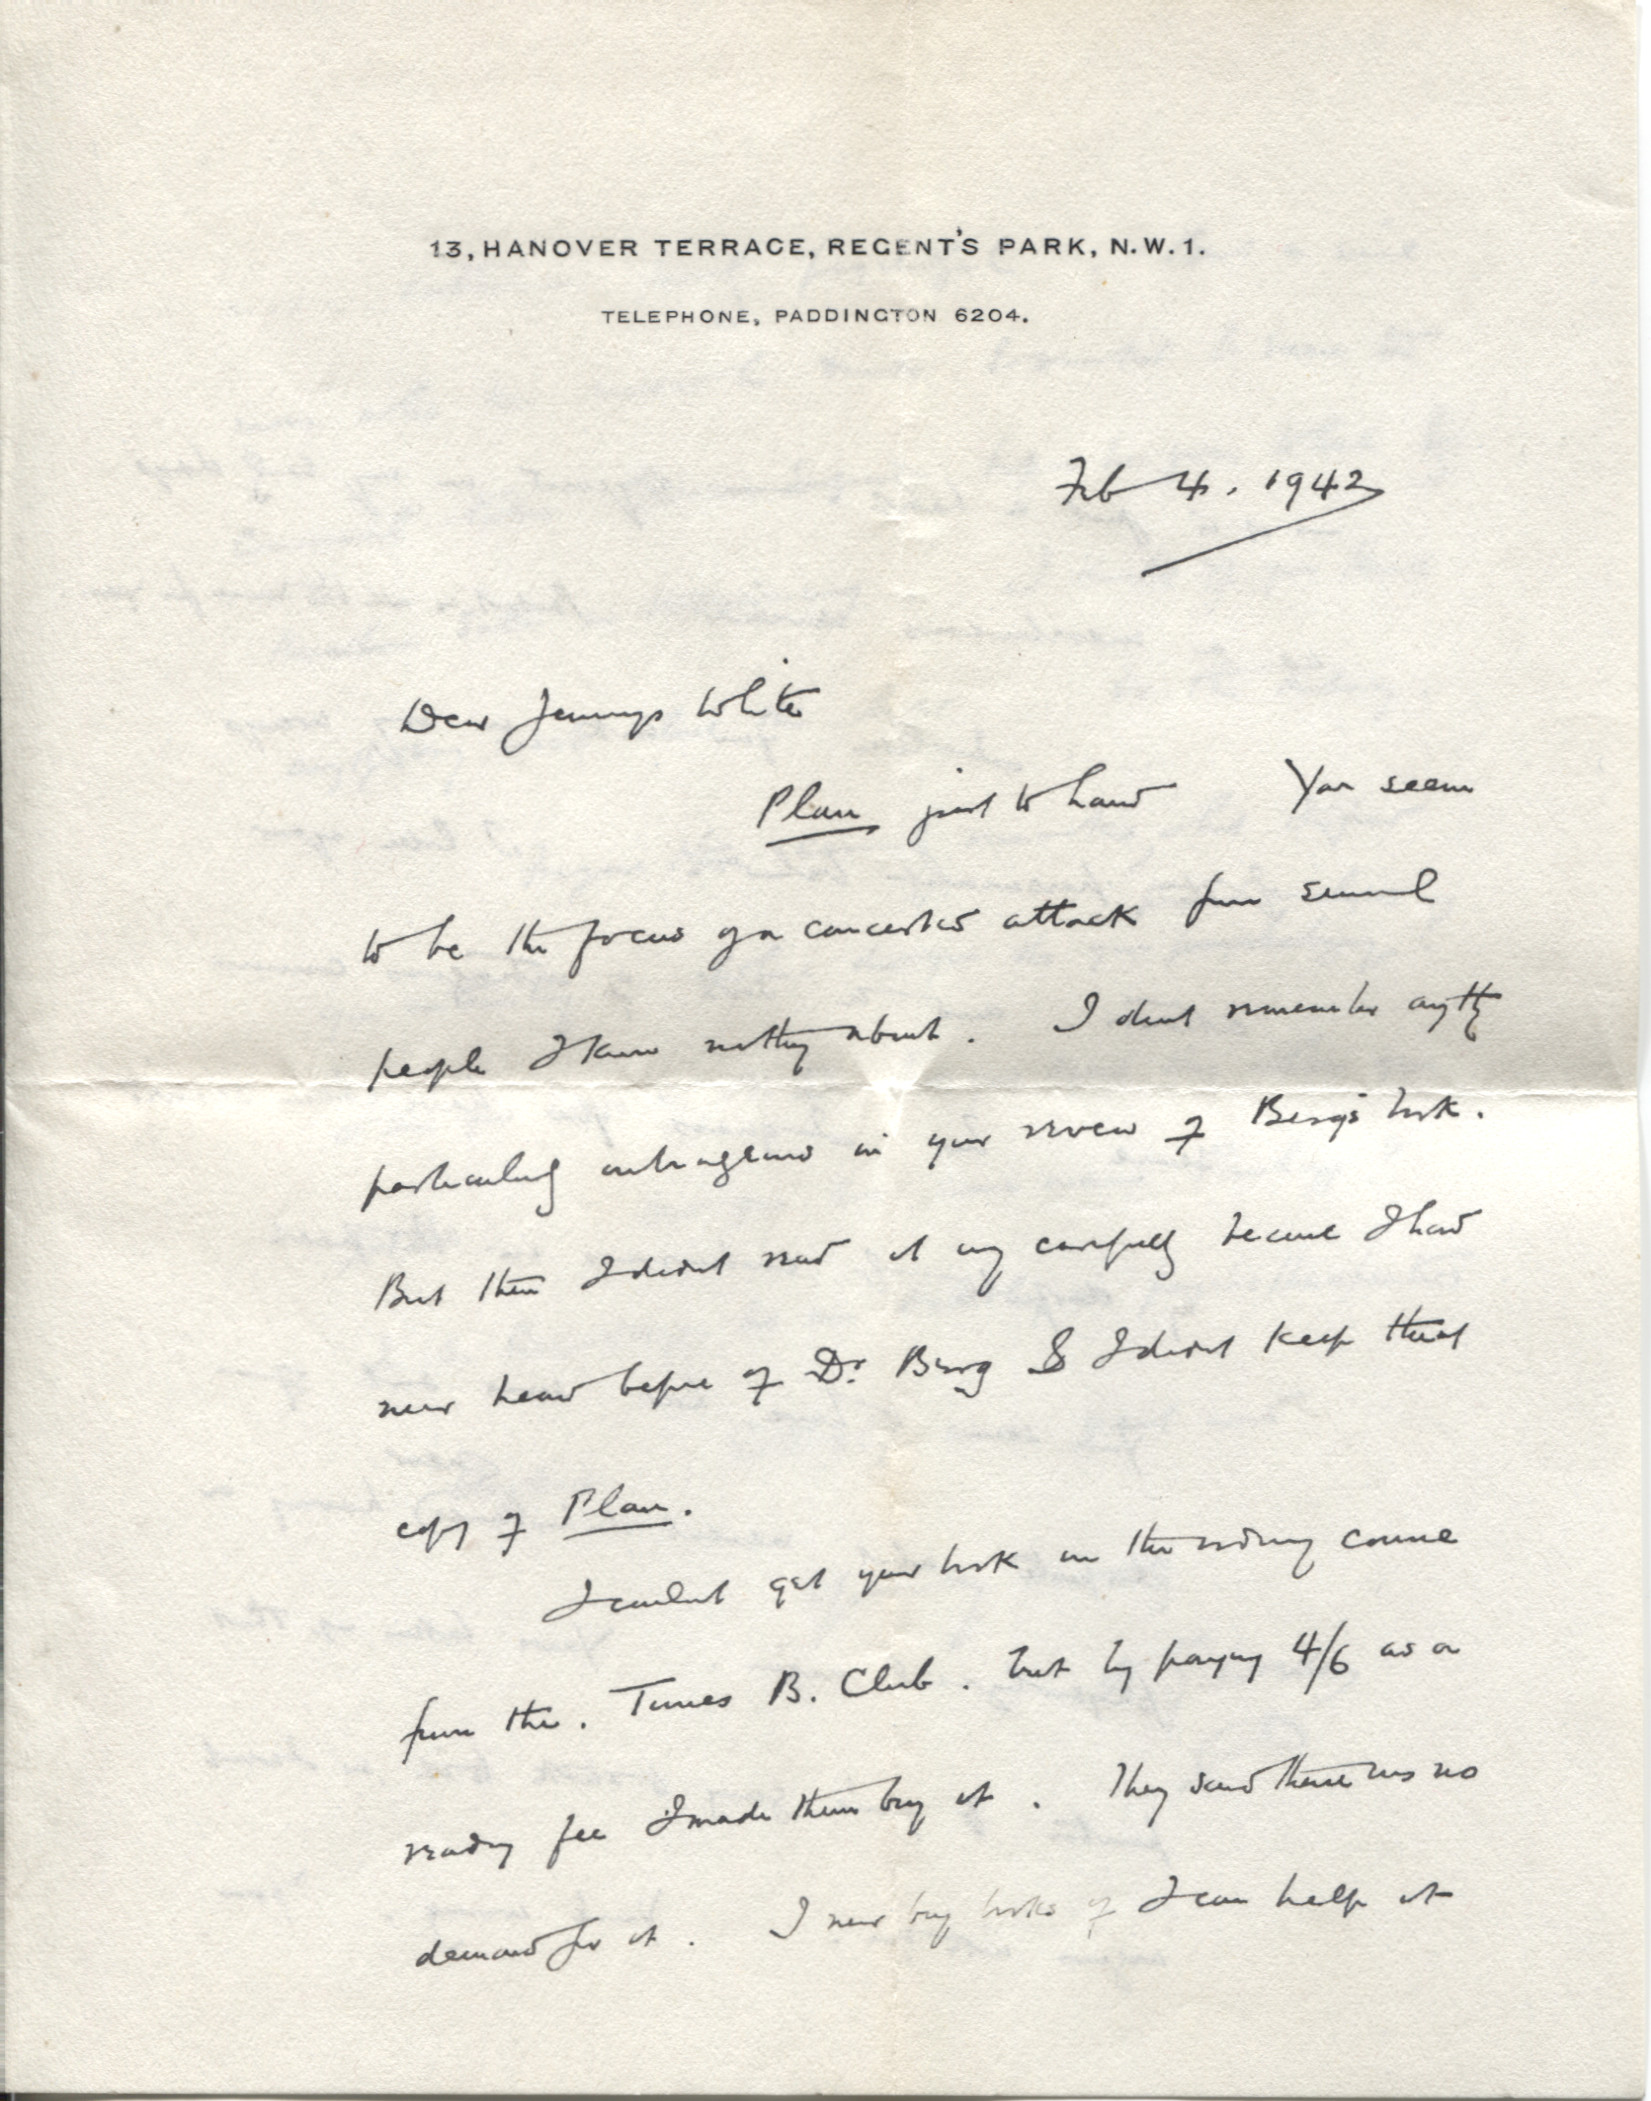 13, HANOVER TERRACE, REGENT'S PARK, N.W.1.
TELEPHONE, PADDINGTON 6204.
Feb 4. 1942
Dear Jennings White
Plan just to hand You seem
to be the focus of a concerted attack from several
people I know nothing about. I dont remember anything
particularly outrageous in your review of Berg's book.
But then I didnt read it very carefully because I had
never heard before of Dr. Berg & I didnt keep that
copy of Plan.
I couldnt get your book in the ordinary course
from the. Times B. Club. but by paying 4/6 as a
reading fee I made them buy it. They said there was no
demand for it. I never buy books if I can help it